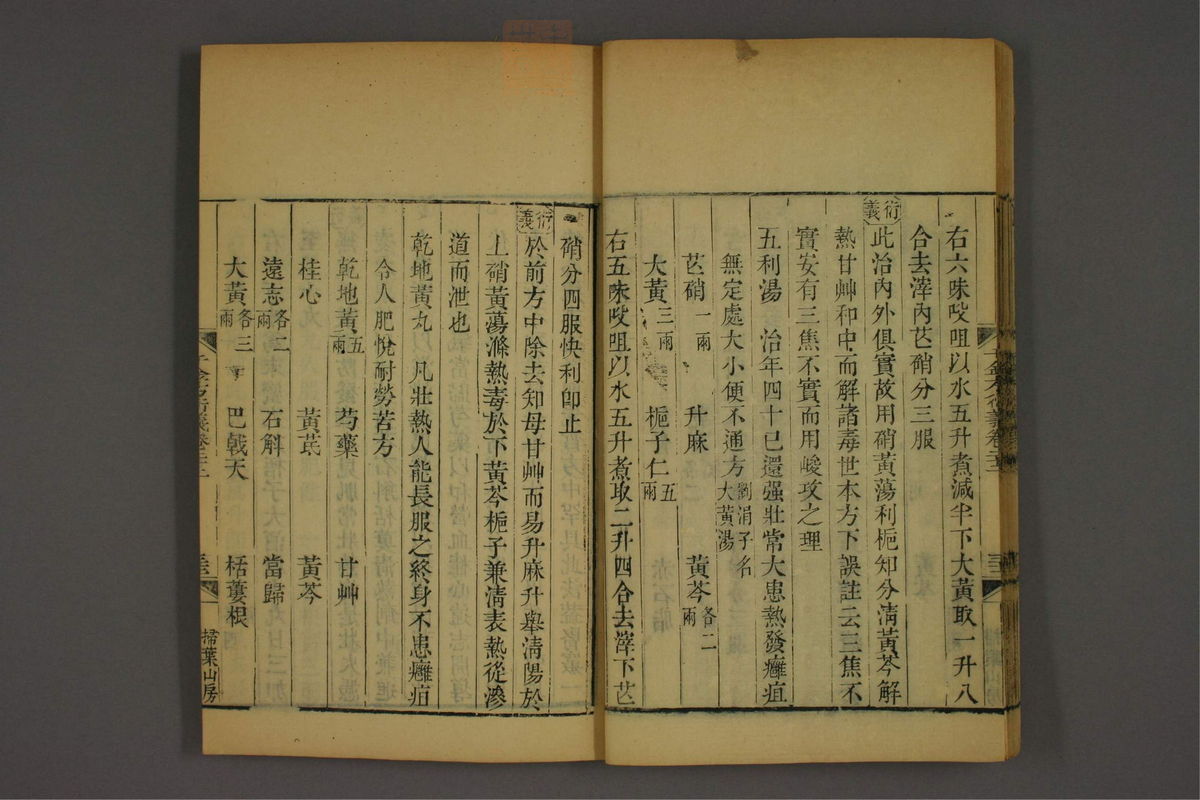 右六味㕮咀以水五升煮減半下大黃取一升八
合去滓內芒硝分三服
衍義此治內外俱實故用硝黃蕩利梔知分清黃芩解
熱甘艸和中而解諸毒世本方下誤註云三焦不
實安有三焦不實而用峻攻之理
五利湯 治年四十已還强壯常大患熱發癰疽
無定處大小便不通方劉涓子名大黃湯
芒硝一兩 升麻 黃芩各二兩
大黃三兩 梔子仁五兩
右五味㕮咀以水五升煮取二升四合去滓下芒
硝分四服快利卽止
衍義於前方中除去知母甘艸而易升麻升舉清陽於
上硝黃蕩滌熱毒於下黃芩梔子兼清表熱從滲
道而泄也
乾地黃丸 凡壯熱人能長服之終身不患癰疽
令人肥悅耐勞苦方
乾地黃五兩 芍藥 甘艸
桂心 黃芪 黃芩
遠志各二兩 石斛 當歸
大黃各三兩 巴戟天 栝蔞根
千金方衍義卷二十二
掃葉山房